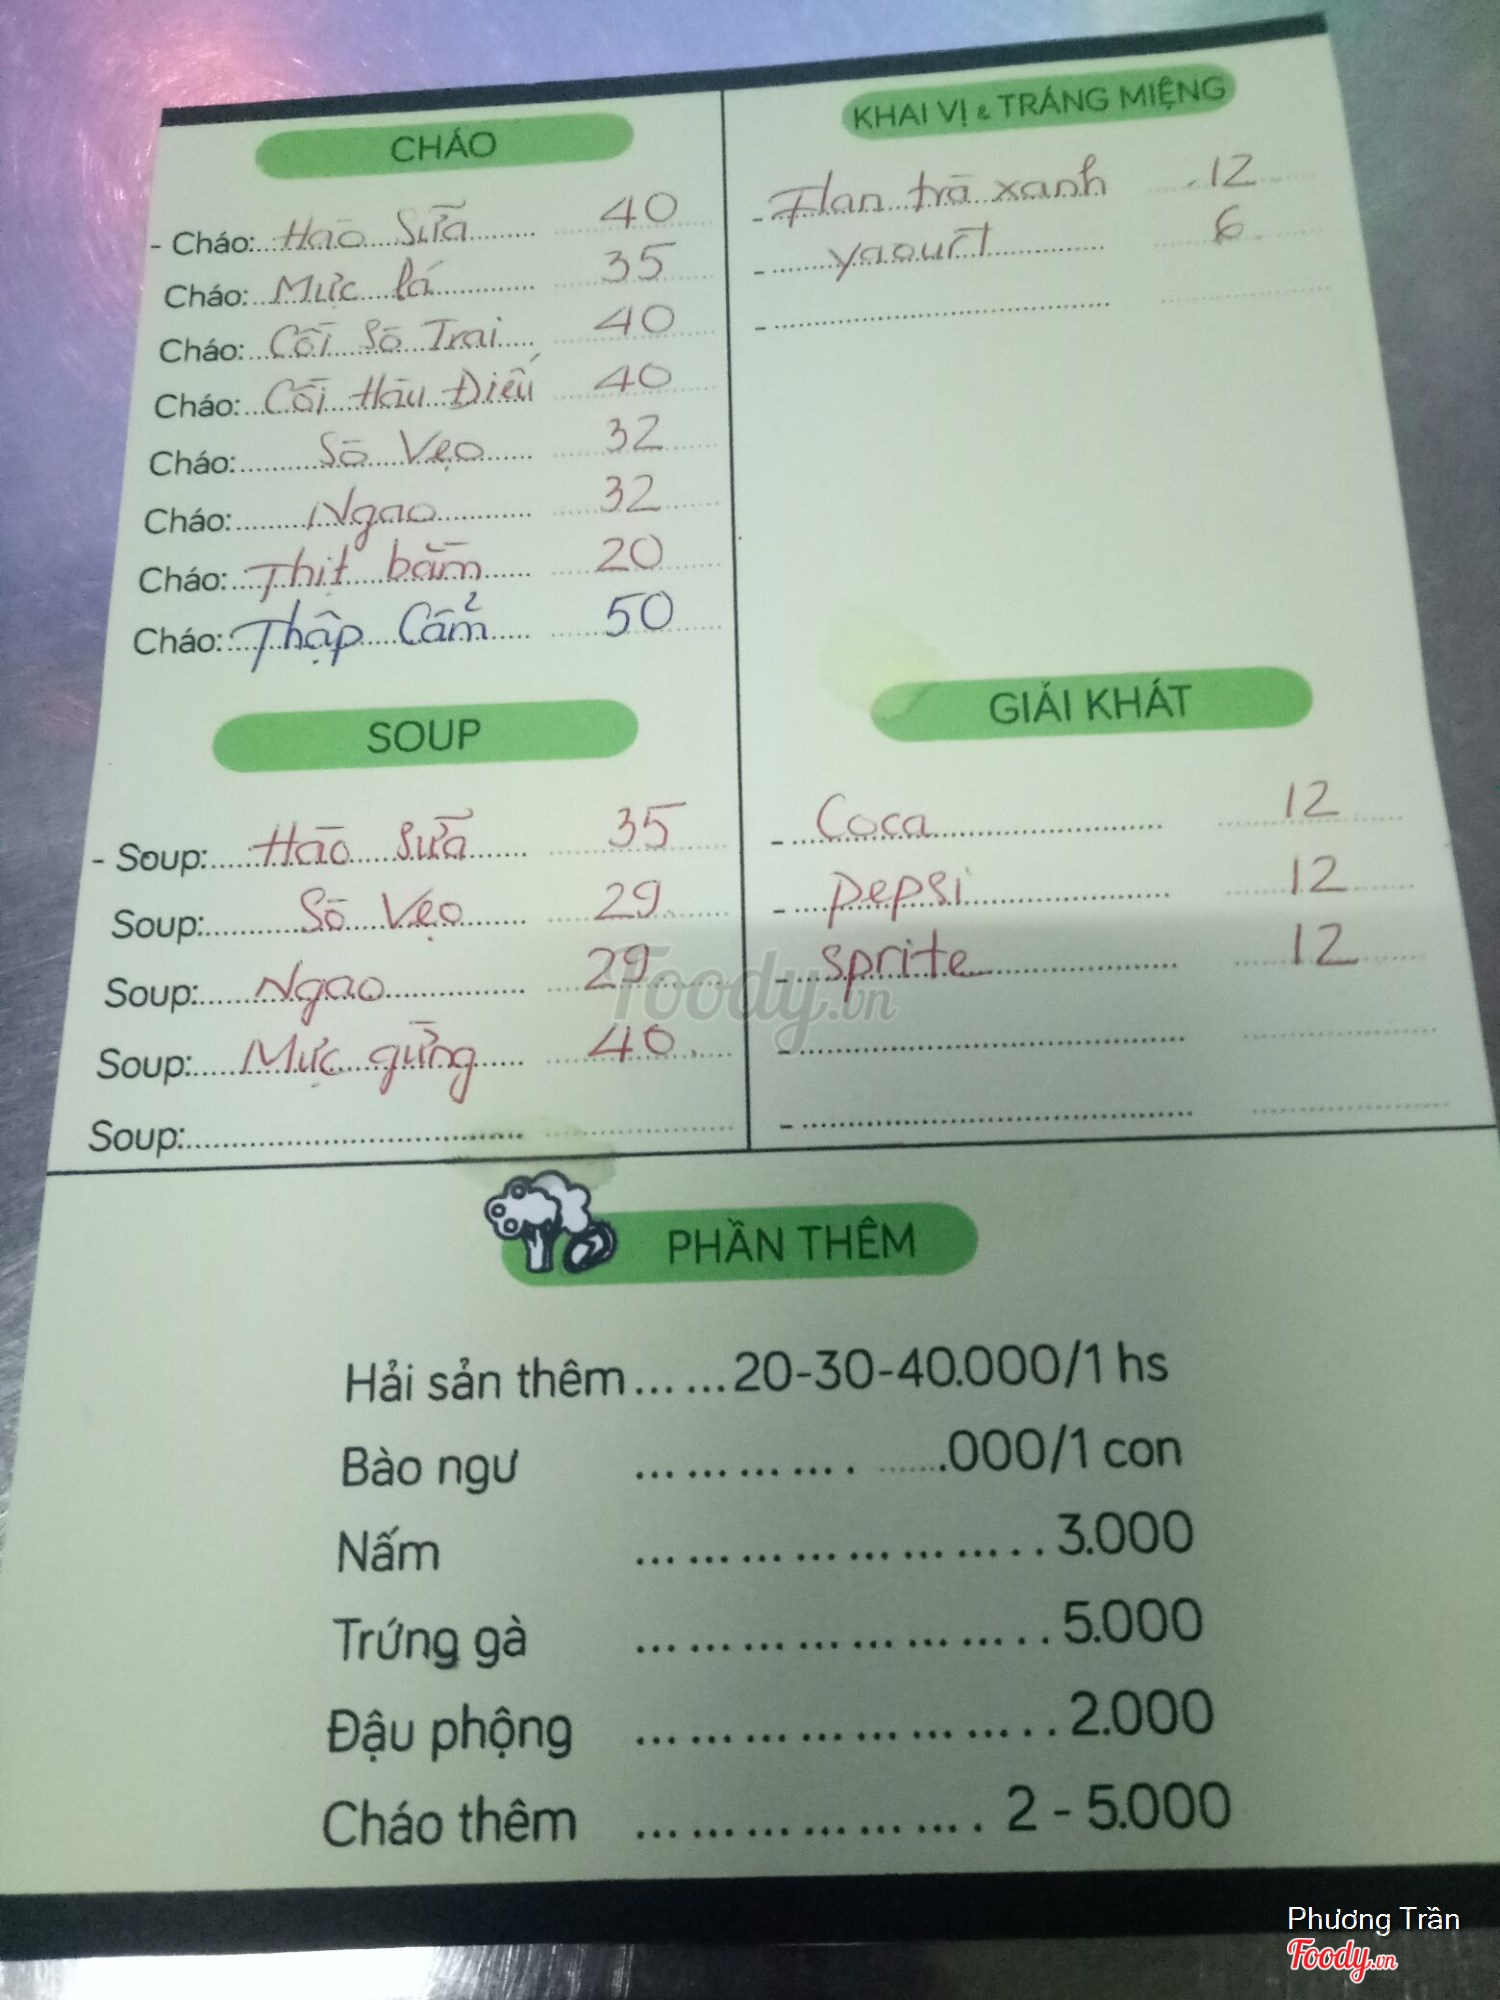 CHÁO
- Cháo: Hào Sữa 40
Cháo: Mực lá 35
Cháo: Cồi Sò Trai 40
Cháo: Cồi Hàu Điếu 40
Cháo: Sò Vẹo 32
Cháo: Ngao 32
Cháo: Thịt bằm 20
Cháo: Thập Cẩm 50
SOUP
- Soup: Hào Sữa 35
Soup: Sò Vẹo 29
Soup: Ngao 29
Soup: Mực gừng 40
Soup:
KHAI VỊ & TRÁNG MIỆNG
- Flan trà xanh 12
- yaourt 6
-
GIẢI KHÁT
- Coca 12
- pepsi 12
- sprite 12
-
-
PHẦN THÊM
Hải sản thêm ... ... 20-30-40.000/1 hs
Bào ngư ... ... ... ... . .......000/1 con
Nấm ... ... ... ... ... ... ... . . 3.000
Trứng gà ... ... ... ... ... ... ... . . 5.000
Đậu phộng ... ... ... ... ... ... ... . . 2.000
Cháo thêm ... ... ... ... ... ... . 2 - 5.000
Foody.vn
Phương Trần
Foody.vn